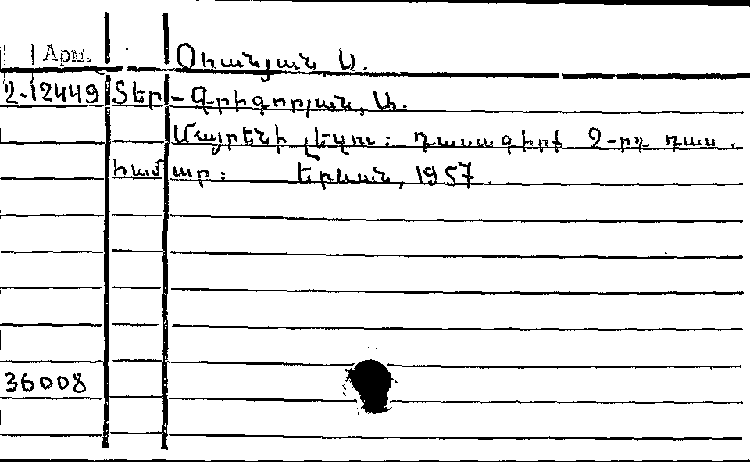 Արտ. Օհանյան Ս.
2-12449 Տեր-Գրիգորյան, Ա.
Մայրենի լեզու: Դասագիրք 2-րդ դաս.
համար: Երևան, 1957
36008